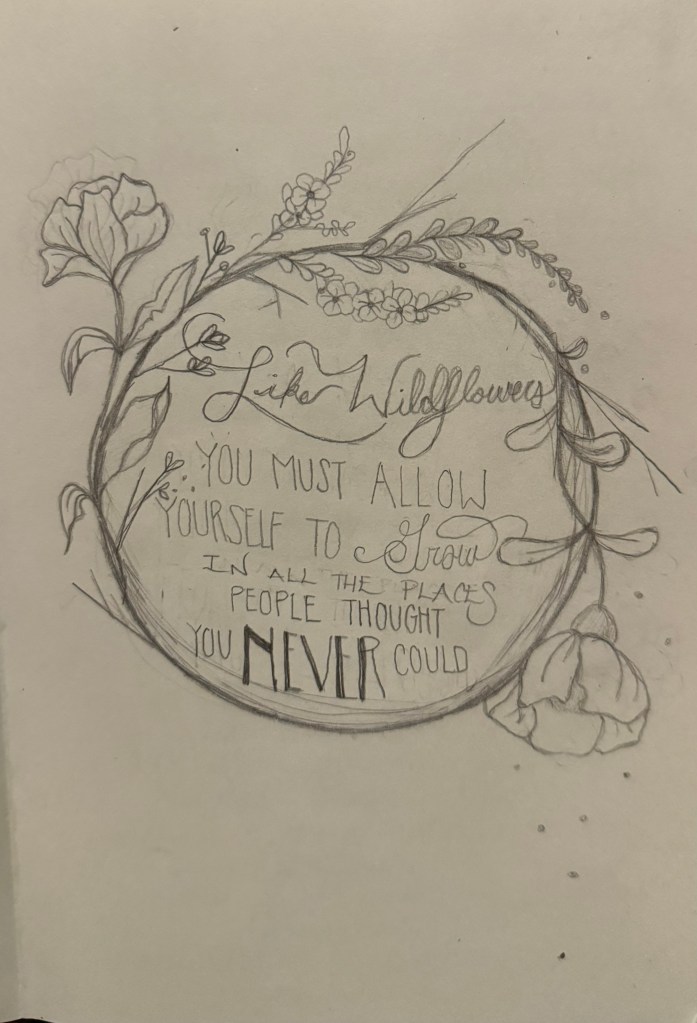 Like Wildflowers
YOU MUST ALLOW
YOURSELF TO Grow
IN ALL THE PLACES
PEOPLE THOUGHT
YOU NEVER COULD